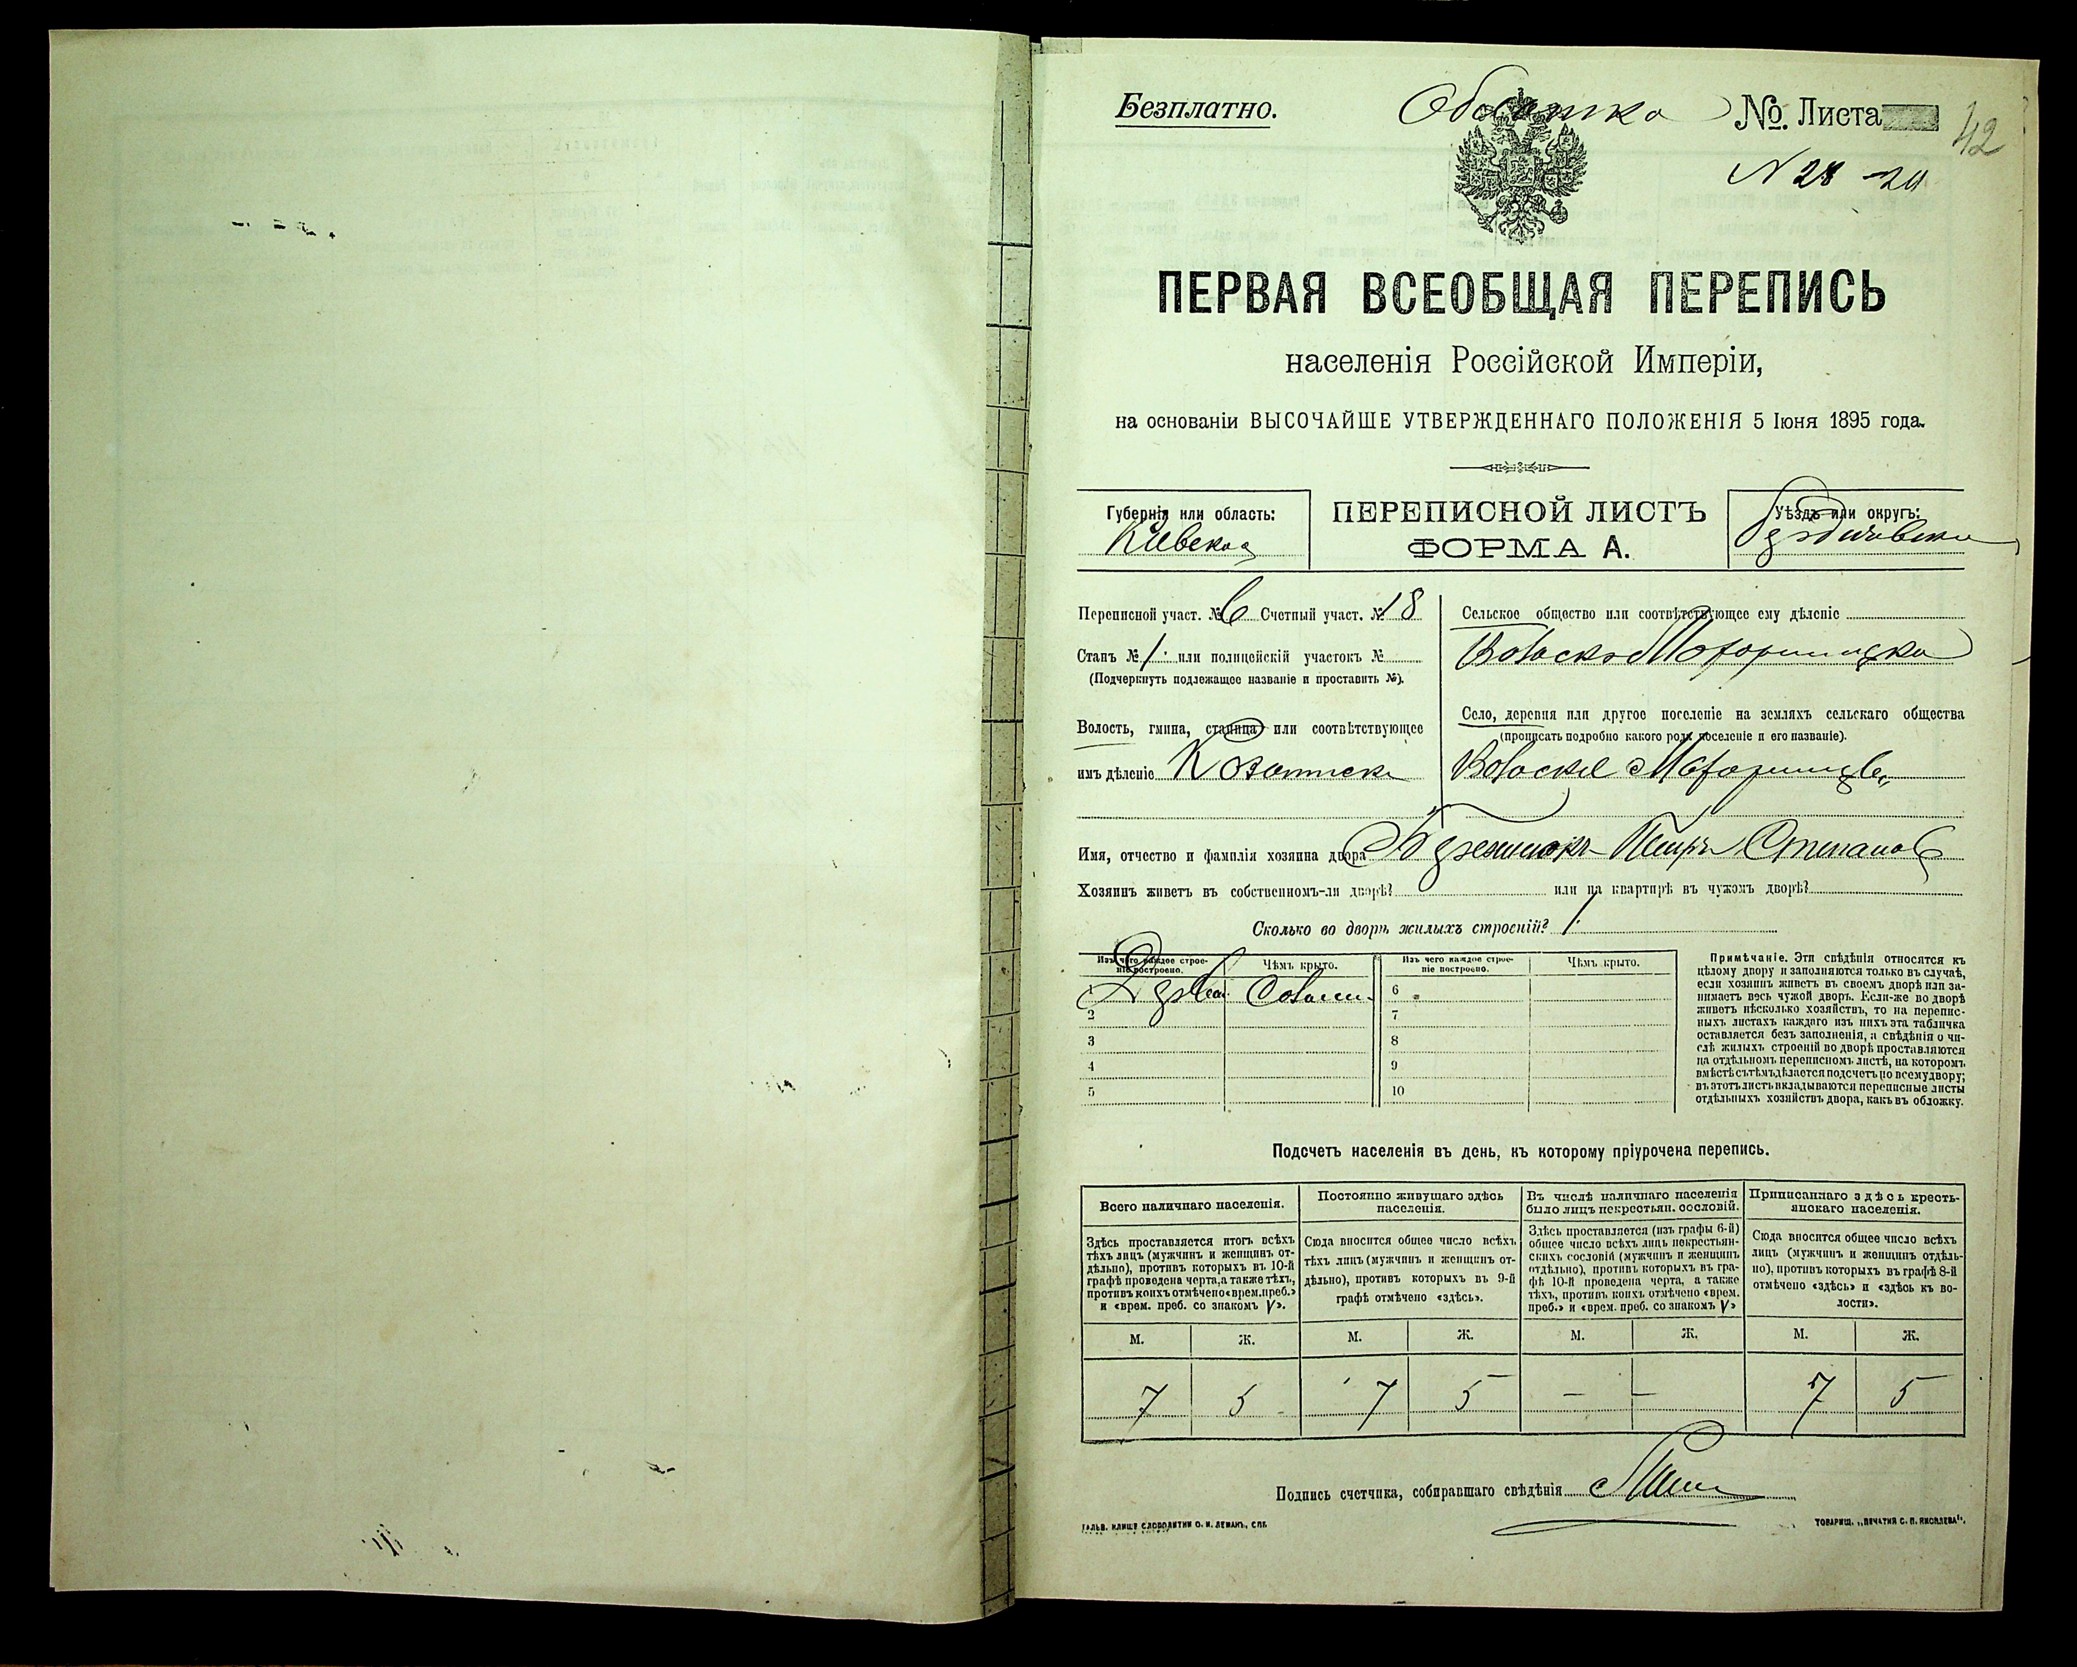 Безплатно.
№ Листа
42
N 28
ПЕРВАЯ ВСЕОБЩАЯ ПЕРЕПИСЬ
населенія Россійской Имперіи,
на основаніи ВЫСОЧАЙШЕ УТВЕРЖДЕННАГО ПОЛОЖЕНІЯ 5 Іюня 1895 года.
Губернія или область:
Кіевская
ПЕРЕПИСНОЙ ЛИСТЪ
ФОРМА А.
Уѣздъ или округъ:
Бердичевскій
Переписной участ. № 6 Счетный участ. № 18
Станъ № 1. или полицейскій участокъ №
(Подчеркнуть подлежащее названіе и проставить №).
Волость, гмина, станица или соотвѣтствующее
имъ дѣленіе
Сельское общество или соотвѣтствующее ему дѣленіе
Село, деревня или другое поселеніе на земляхъ сельскаго общества
(прописать подробно какого рода поселеніе и его названіе).
Имя, отчество и фамилія хозяина двора Петръ Степановъ
Хозяинъ живетъ въ собственномъ-ли дворѣ? или на квартирѣ въ чужомъ дворѣ?
Сколько во дворѣ жилыхъ строеній? 1.
Изъ чего каждое строеніе построено.
Чѣмъ крыто.
Изъ чего каждое строеніе построено.
Чѣмъ крыто.
1 Дерева Солом. 6
2 7
3 8
4 9
5 10
Примѣчаніе. Эти свѣдѣнія относятся къ
цѣлому двору и заполняются только въ случаѣ,
если хозяинъ живетъ въ своемъ дворѣ или за-
нимаетъ весь чужой дворъ. Если-же во дворѣ
живетъ нѣсколько хозяйствъ, то на перепис-
ныхъ листахъ каждаго изъ нихъ эта табличка
оставляется безъ заполненія, а свѣдѣнія о чи-
слѣ жилыхъ строеній во дворѣ проставляются
на отдѣльномъ переписномъ листѣ, на которомъ
вмѣстѣ съ тѣмъ дѣлается подсчетъ по всему двору;
въ этотъ листъ вкладываются переписные листы
отдѣльныхъ хозяйствъ двора, какъ въ обложку.
Подсчетъ населенія въ день, къ которому пріурочена перепись.
Всего наличнаго населенія.
Здѣсь проставляется итогъ всѣхъ
тѣхъ лицъ (мужчинъ и женщинъ от-
дѣльно), противъ которыхъ въ 10-й
графѣ проведена черта, а также тѣхъ,
противъ коихъ отмѣчено «врем. преб.»
и «врем. преб. со знакомъ V».
Постоянно живущаго здѣсь
населенія.
Сюда вносится общее число всѣхъ
тѣхъ лицъ (мужчинъ и женщинъ от-
дѣльно), противъ которыхъ въ 9-й
графѣ отмѣчено «здѣсь».
Въ числѣ наличнаго населенія
было лицъ некрестьян. сословій.
Здѣсь проставляется (изъ графы 6-й)
общее число всѣхъ лицъ некрестьян-
скихъ сословій (мужчинъ и женщинъ
отдѣльно), противъ которыхъ въ гра-
фѣ 10-й проведена черта, а также
тѣхъ, противъ коихъ отмѣчено «врем.
преб.» и «врем. преб. со знакомъ V»
Приписаннаго здѣсь кресть-
янскаго населенія.
Сюда вносится общее число всѣхъ
лицъ (мужчинъ и женщинъ отдѣль-
но), противъ которыхъ въ графѣ 8-й
отмѣчено «здѣсь» и «здѣсь въ во-
лости».
М. Ж. М. Ж. М. Ж. М. Ж.
7 5 7 5 — — 7 5
Подпись счетчика, собиравшаго свѣдѣнія
ГАЛЬВ. КЛИШЕ СЛОВОЛИТНИ О. И. ЛЕМАНЪ, СПБ.
ТОВАРИЩ. „ПЕЧАТНЯ С. П. ЯКОВЛЕВА".